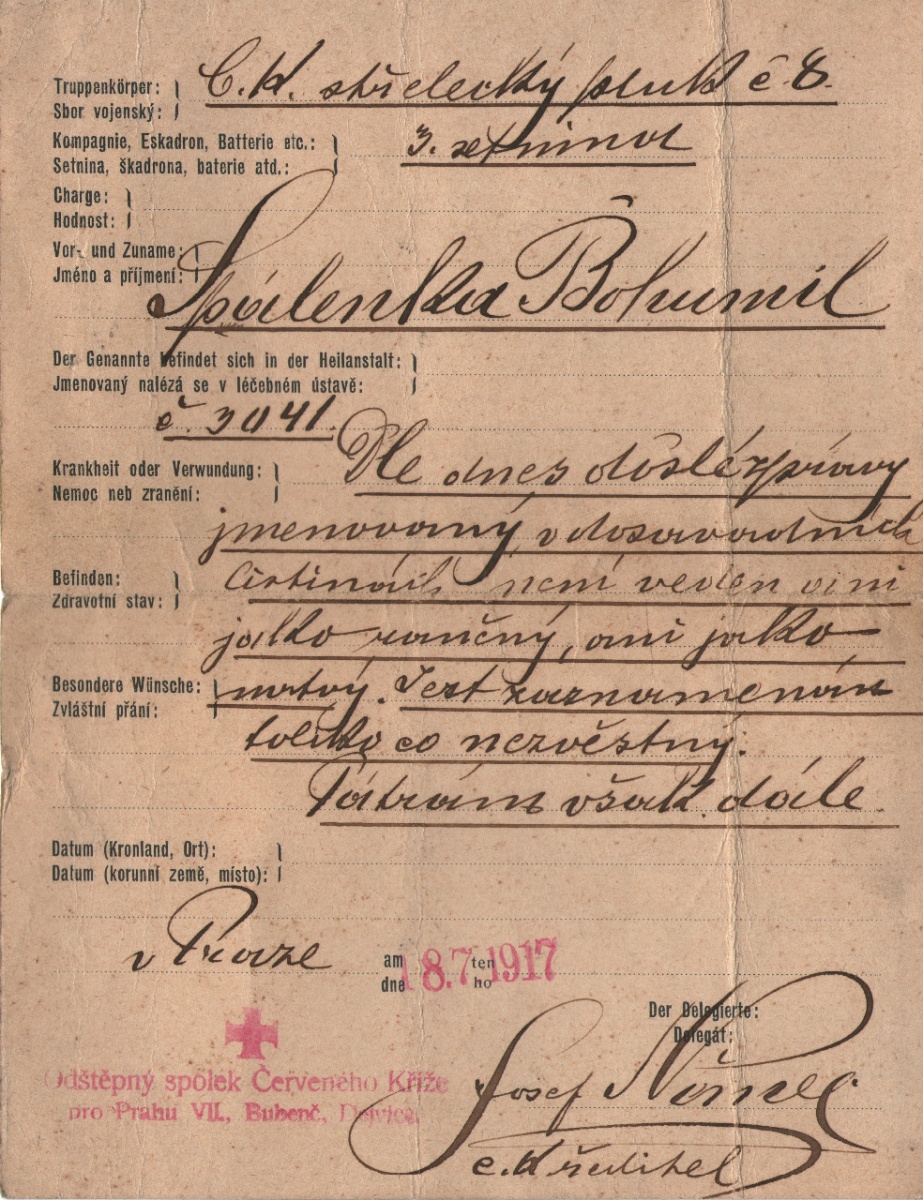 Truppenkörper:
Sbor vojenský:
C.k. střelecký pluk č 8.
Kompagnie, Eskadron, Batterie etc.:
Setnina, škadrona, baterie atd.:
3. setnina
Charge:
Hodnost:
Vor- und Zuname:
Jméno a příjmení:
Spálenka Bohumil
Der Genannte befindet sich in der Heilanstalt:
Jmenovaný nalézá se v léčebném ústavě:
č. 3041.
Krankheit oder Verwundung:
Nemoc neb zranění:
Dle dnes došlé zprávy
jmenovaný v dosavadních
Befinden:
Zdravotní stav:
listinách není veden ani
jako raněný, ani jako
Besondere Wünsche:
Zvláštní přání:
mrtvý. Jest zaznamenán
toliko co nezvěstný.
Pátrám však dále.
Datum (Kronland, Ort):
Datum (korunní země, místo):
v Praze
am ten
dne ho
18.7 1917
Der Delegierte:
Delegát:
Odštěpný spolek Červeného Kříže
pro Prahu VII., Bubenč, Dejvice.
Josef Němec
c.k ředitel